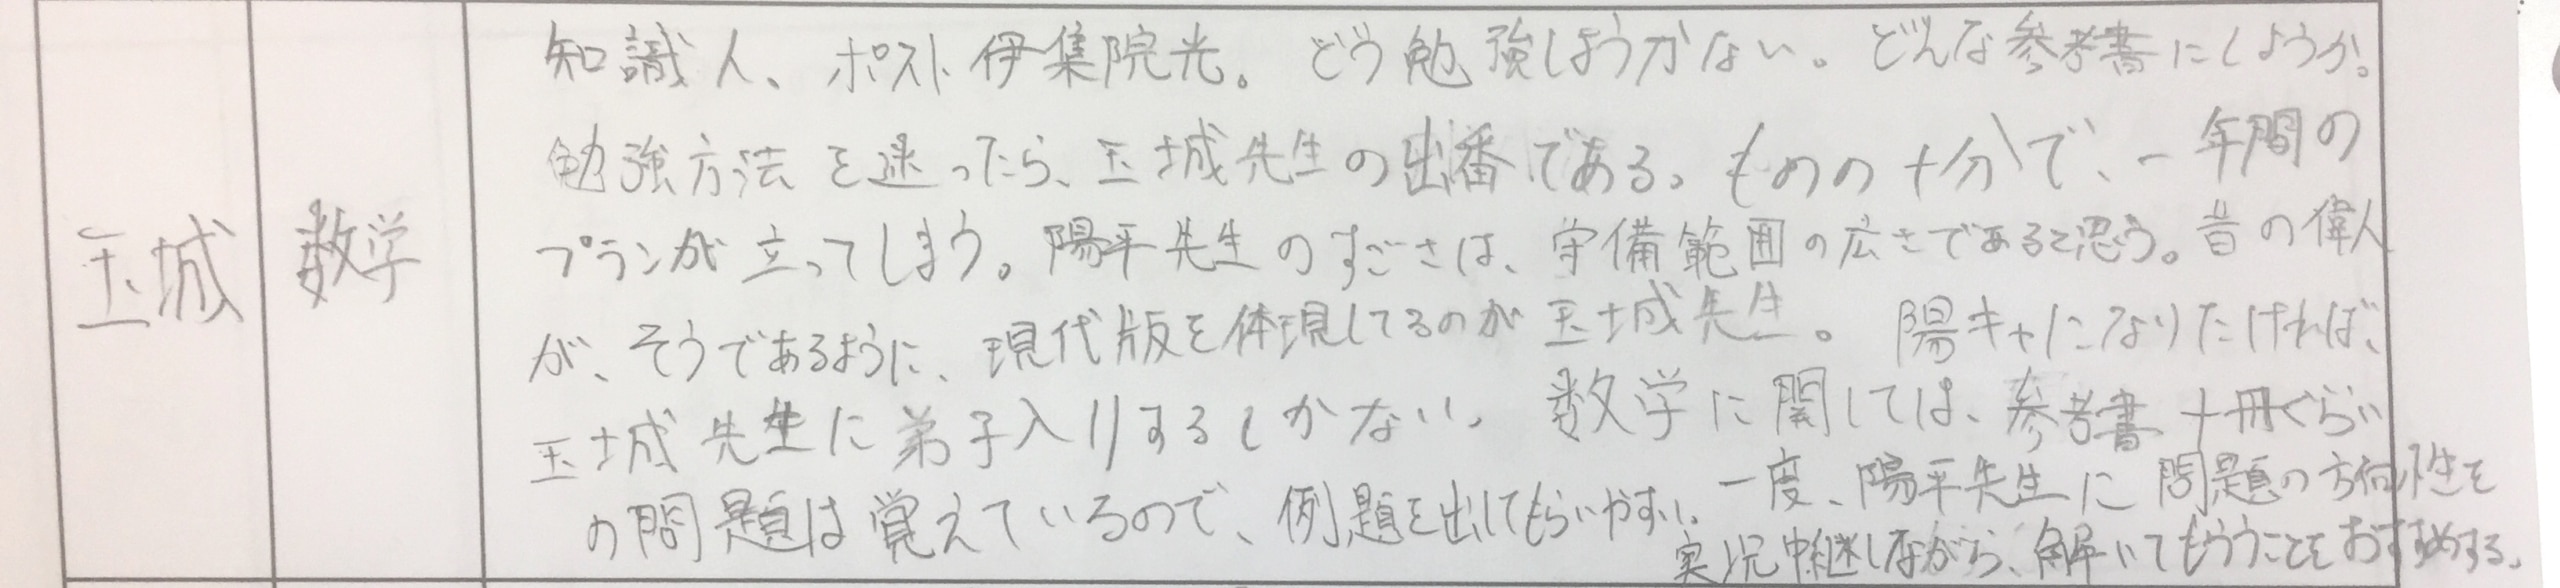 玉城
数学
知識人、ポスト伊集院光。どう勉強しようかない。どんな参考書にしようか。
勉強方法を迷ったら、玉城先生の出番である。ものの十分で、一年間の
プランが立ってしまう。陽平先生のすごさは、守備範囲の広さであると思う。昔の偉人
が、そうであるように、現代版を体現してるのが玉城先生。陽キャになりたければ、
玉城先生に弟子入りするしかない。数学に関しては、参考書十冊ぐらい
の問題は覚えているので、例題を出してもらいやすい。一度、陽平先生に問題の方向性を
実況中継しながら、解いてもらうことをおすすめする。